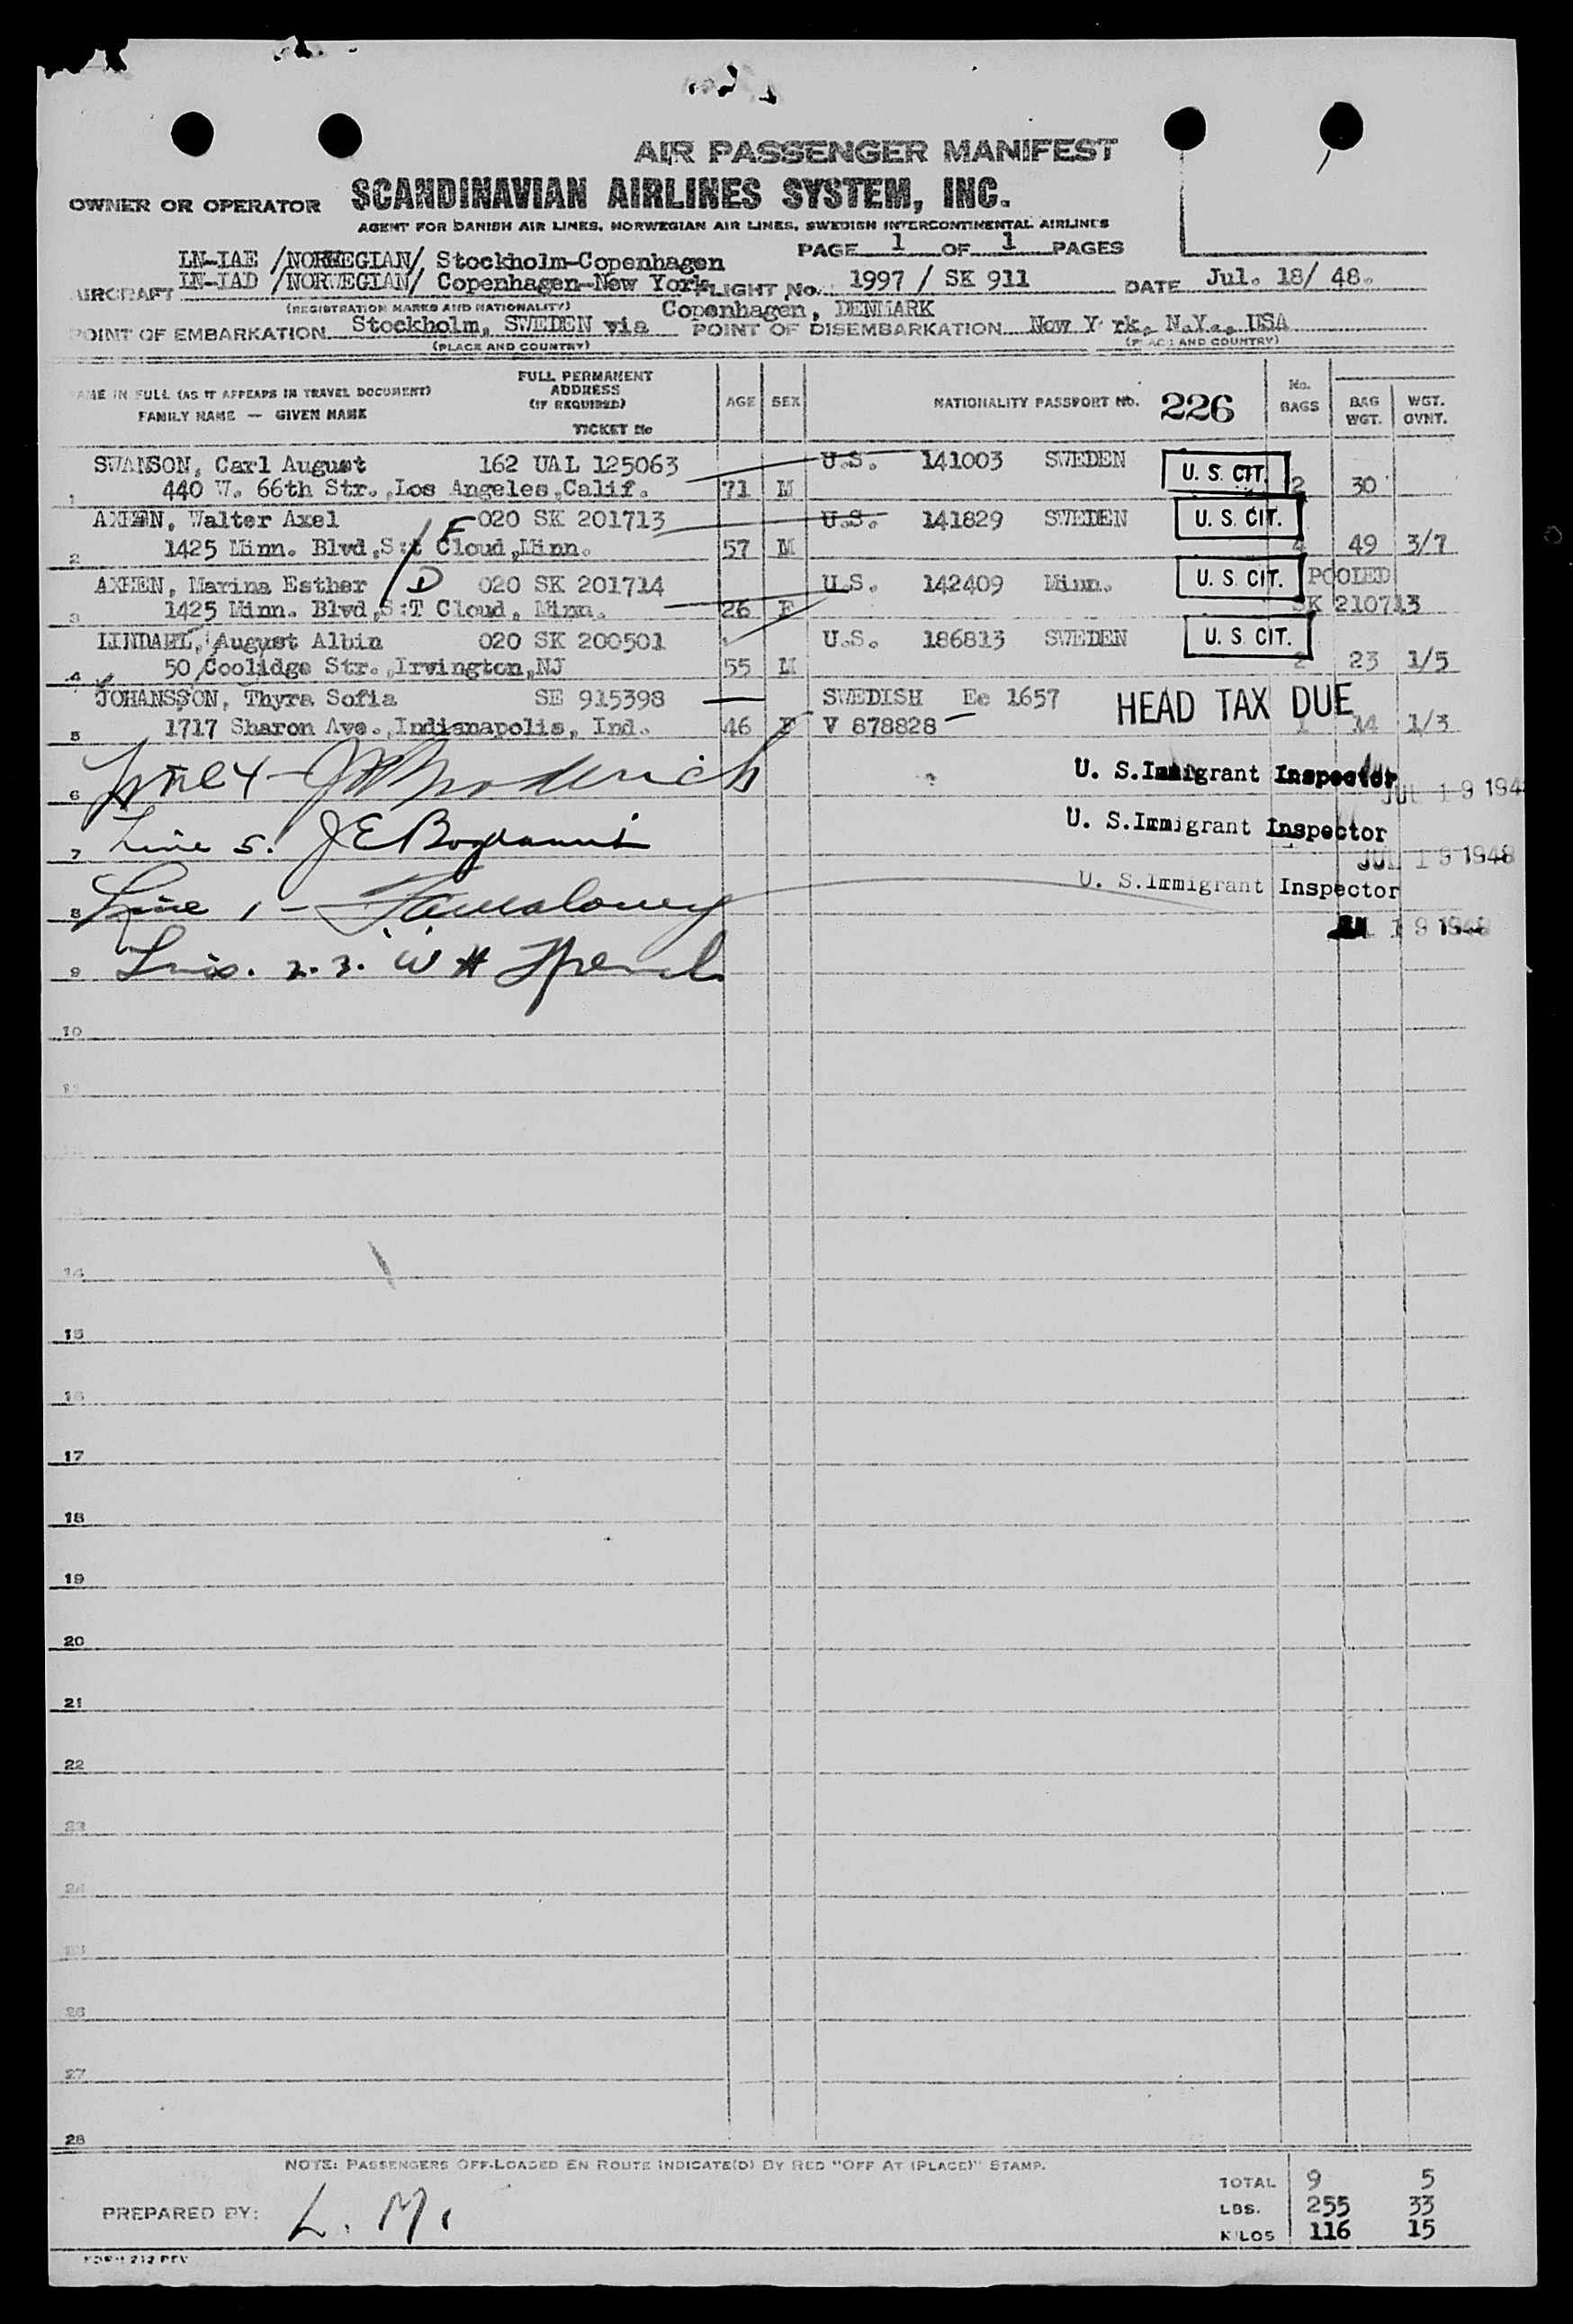 AIR PASSENGER MANIFEST
OWNER OR OPERATOR SCANDINAVIAN AIRLINES SYSTEM, INC.
AGENT FOR DANISH AIR LINES, NORWEGIAN AIR LINES, SWEDISH INTERCONTINENTAL AIRLINES
PAGE 1 OF 1 PAGES
LN-IAE /NORWEGIAN/ Stockholm-Copenhagen
AIRCRAFT LN-IAD /NORWEGIAN/ Copenhagen-New York FLIGHT No. 1997 / SK 911 DATE Jul. 18/ 48.
(REGISTRATION MARKS AND NATIONALITY) Copenhagen, DENMARK
POINT OF EMBARKATION Stockholm, SWEDEN via POINT OF DISEMBARKATION New Y rk, N.Y., USA
(PLACE AND COUNTRY) (PLACE AND COUNTRY)
NAME IN FULL (AS IT APPEARS IN TRAVEL DOCUMENT)
FAMILY NAME — GIVEN NAME
FULL PERMANENT
ADDRESS
(IF REQUIRED)
TICKET No
AGE SEX NATIONALITY PASSPORT No. 226 No. BAGS BAG WGT. WGT. OVNT.
SWANSON, Carl August 162 UAL 125063 U.S. 141003 SWEDEN U. S. CIT.
1 440 W. 66th Str., Los Angeles, Calif. 71 M 2 30
AXHEN, Walter Axel F 020 SK 201713 U.S. 141829 SWEDEN U. S. CIT.
2 1425 Minn. Blvd, S:t Cloud, Minn. 57 M 4 49 3/7
AXHEN, Marina Esther D 020 SK 201714 U.S. 142409 Minn. U. S. CIT. POOLED
3 1425 Minn. Blvd, S:T Cloud, Minn. 26 F SK 210713
LINDAHL, August Albin 020 SK 200501 U.S. 186813 SWEDEN U. S. CIT.
4 50 Coolidge Str., Irvington, NJ 55 M 2 23 1/5
JOHANSSON, Thyra Sofia SE 915398 SWEDISH Ee 1657 HEAD TAX DUE
5 1717 Sharon Ave., Indianapolis, Ind. 46 F V 878828 1 14 1/3
6 Line 4 - U. S. Immigrant Inspector
JUL 19 1948
7 Line 5. J E U. S. Immigrant Inspector
JUL 19 1948
8 Line 1 - U. S. Immigrant Inspector
JUL 19 1948
9 Lines. 2.3. W H
10
11
12
13
14
15
16
17
18
19
20
21
22
23
24
25
26
27
28
NOTE: PASSENGERS OFF-LOADED EN ROUTE INDICATE(D) BY RED "OFF AT (PLACE)" STAMP.
TOTAL 9 5
PREPARED BY: L. M. LBS. 255 33
KILOS 116 15
FORM 212 REV